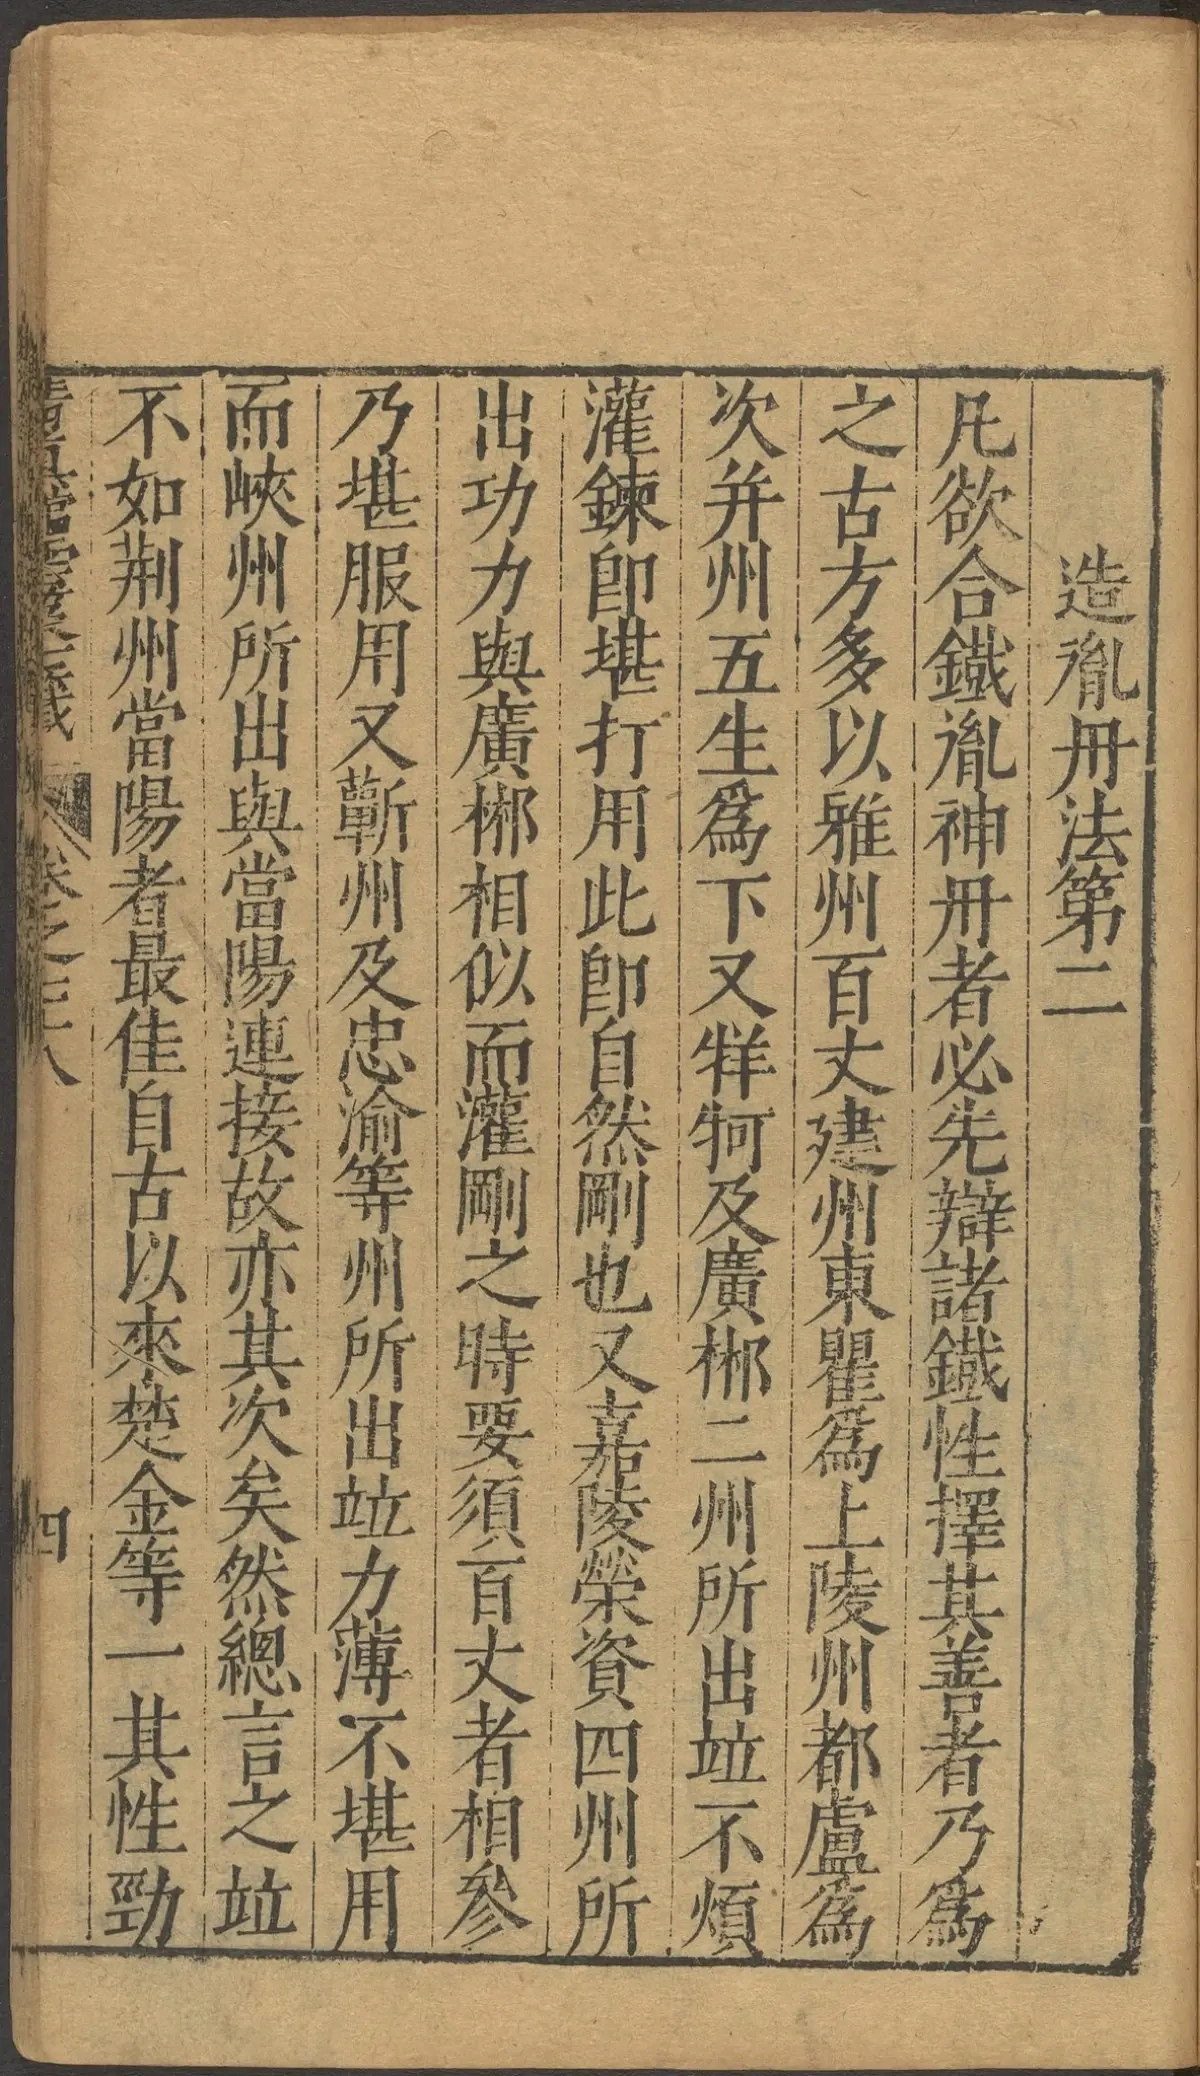 造胤丹法第二
凡欲合鐵胤神丹者必先辯諸鐵性擇其善者乃爲
之古方多以雅州百丈建州東瞿爲上陵州都盧爲
次并州五生爲下又牂牁及廣郴二州所出竝不煩
灌鍊卽堪打用此卽自然剛也又嘉陵榮資四州所
出功力與廣郴相似而灌剛之時要須百丈者相參
乃堪服用又蘄州及忠渝等州所出竝力薄不堪用
而峽州所出與當陽連接故亦其次矣然總言之竝
不如荆州當陽者最佳自古以來楚金等一其性勁
卷之六十八
四